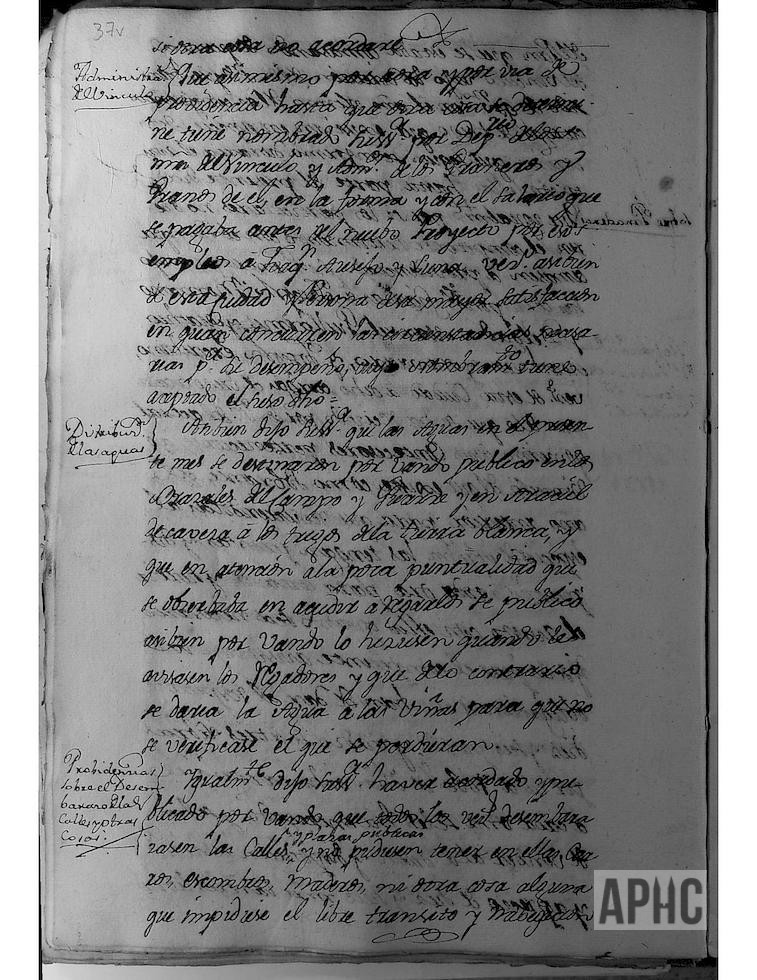 37v
si otra cosa no acordare
Administra.on
del Vinculo
Que asimismo por aora y por via de
providencia hasta que otra cosa se determi-
ne tiene nombrado su S.a por Dep.rio
del Vinculo y Adm.or de los Graneros y
Granos de el, en la forma y con el Salario que
se pagaba antes del nuebo Proyecto por esos
empleos a Joaq.n y Luna vez.o asibien
de esta Ciudad y Persona de su mayor satisfaccion
en quien concurren las circunstancias necesa-
rias p.a su desempeño, cuyo nombram.to tiene
aceptado el suso dho=
Distribu.on
de las aguas
Asibien dijo su S.a que las Aguas en el presen-
te mes se destinaron por vando publico en los
del Campo y y en
de caveza à los trigos de la tierra blanca, y
que en atencion a la poca puntualidad que
se observaba en acudir a regarlos se publico
asibien por Vando lo hiziesen quando les
avisasen los Regadores y que de lo contrario
se daria la Agua à las Viñas para que no
se verificase el que se perdieran
Probidencias
sobre el Desem-
barazo de las
Calles y otras
Cosas.
Igualm.te dijo su S.a haver acordado y pu-
blicado por vando que todos los vez.s desembara-
zasen las Calles y plazas publicas y no pudiesen tener en ellas Car-
ros, escombros, maderos, ni otra cosa alguna
que impidiese el libre transito y
sobre Panaderos
APHC